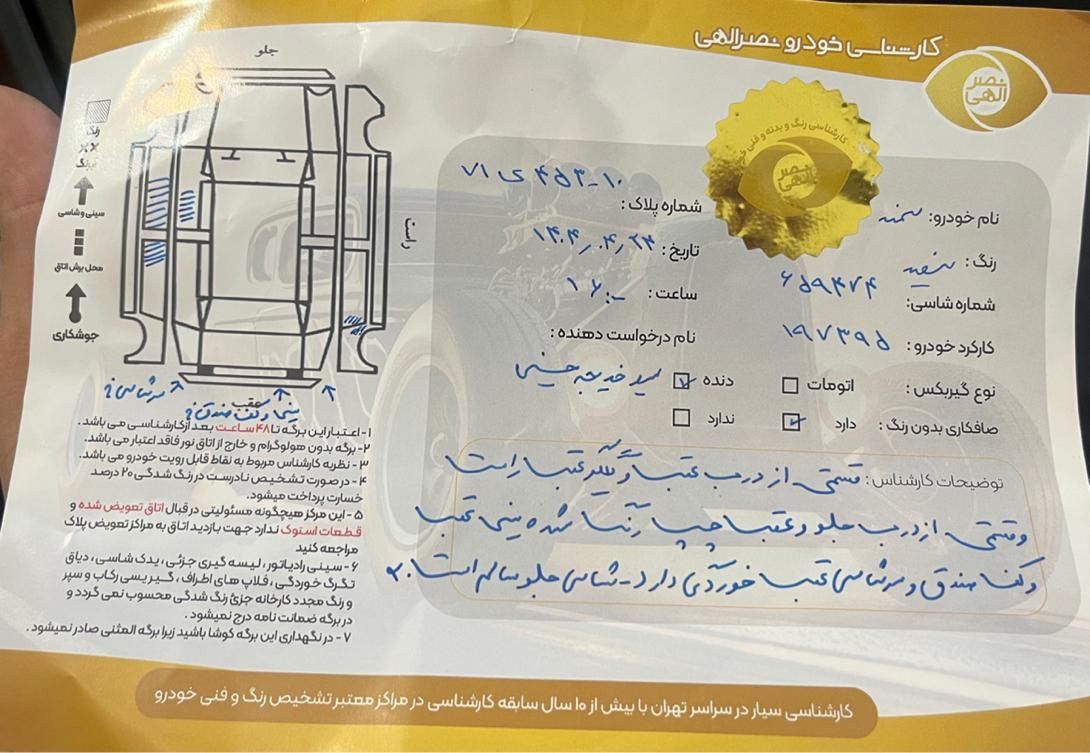 کارشناسی خودرو نصرالهی
نصر
الهی
کارشناسی رنگ و بدنه و فنی خودرو
نصر
الهی
نام خودرو: سمند
رنگ: سفید
شماره شاسی: ۶۵۹۴۷۴
کارکرد خودرو: ۱۹۷۳۹۵
نوع گیربکس: اتومات دنده
صافکاری بدون رنگ: دارد ندارد
شماره پلاک: ۷۱ ی ۴۵۳-۱۰
تاریخ: ۱۴۰۴/۰۴/۲۴
ساعت: ۱۶:۰۰
نام درخواست دهنده:
خدیجه حسینی
توضیحات کارشناس: قسمتی از درب عقب و گلگیر عقب راست
و قسمتی از درب جلو و عقب چپ رنگ شده سینی عقب
و کف صندق و سرشاسی عقب خوردگی دارد - شاسی جلو سالم است.
جلو
راست
عقب
رنگ
سینی و شاسی
محل برش اتاق
جوشکاری
سرشاسی
سینی و کف صندق
۱- اعتبار این برگه تا ۴۸ ساعت بعد از کارشناسی می باشد.
۲- برگه بدون هولوگرام و خارج از اتاق نور فاقد اعتبار می باشد.
۳- نظریه کارشناس مربوط به نقاط قابل رویت خودرو می باشد.
۴- در صورت تشخیص نادرست در رنگ شدگی ۲۰ درصد
خسارت پرداخت میشود.
۵- این مرکز هیچگونه مسئولیتی در قبال اتاق تعویض شده و
قطعات استوک ندارد جهت بازدید اتاق به مراکز تعویض پلاک
مراجعه کنید
۶- سینی رادیاتور، لیسه گیری جزئی، یدک شاسی، دیاق
تگرگ خوردگی، فلاپ های اطراف، گیریسی رکاب و سپر
و رنگ مجدد کارخانه جزئ رنگ شدگی محسوب نمی گردد و
در برگه ضمانت نامه درج نمیشود.
۷- در نگهداری این برگه کوشا باشید زیرا برگه المثنی صادر نمیشود.
کارشناسی سیار در سراسر تهران با بیش از ۱۰ سال سابقه کارشناسی در مراکز معتبر تشخیص رنگ و فنی خودرو